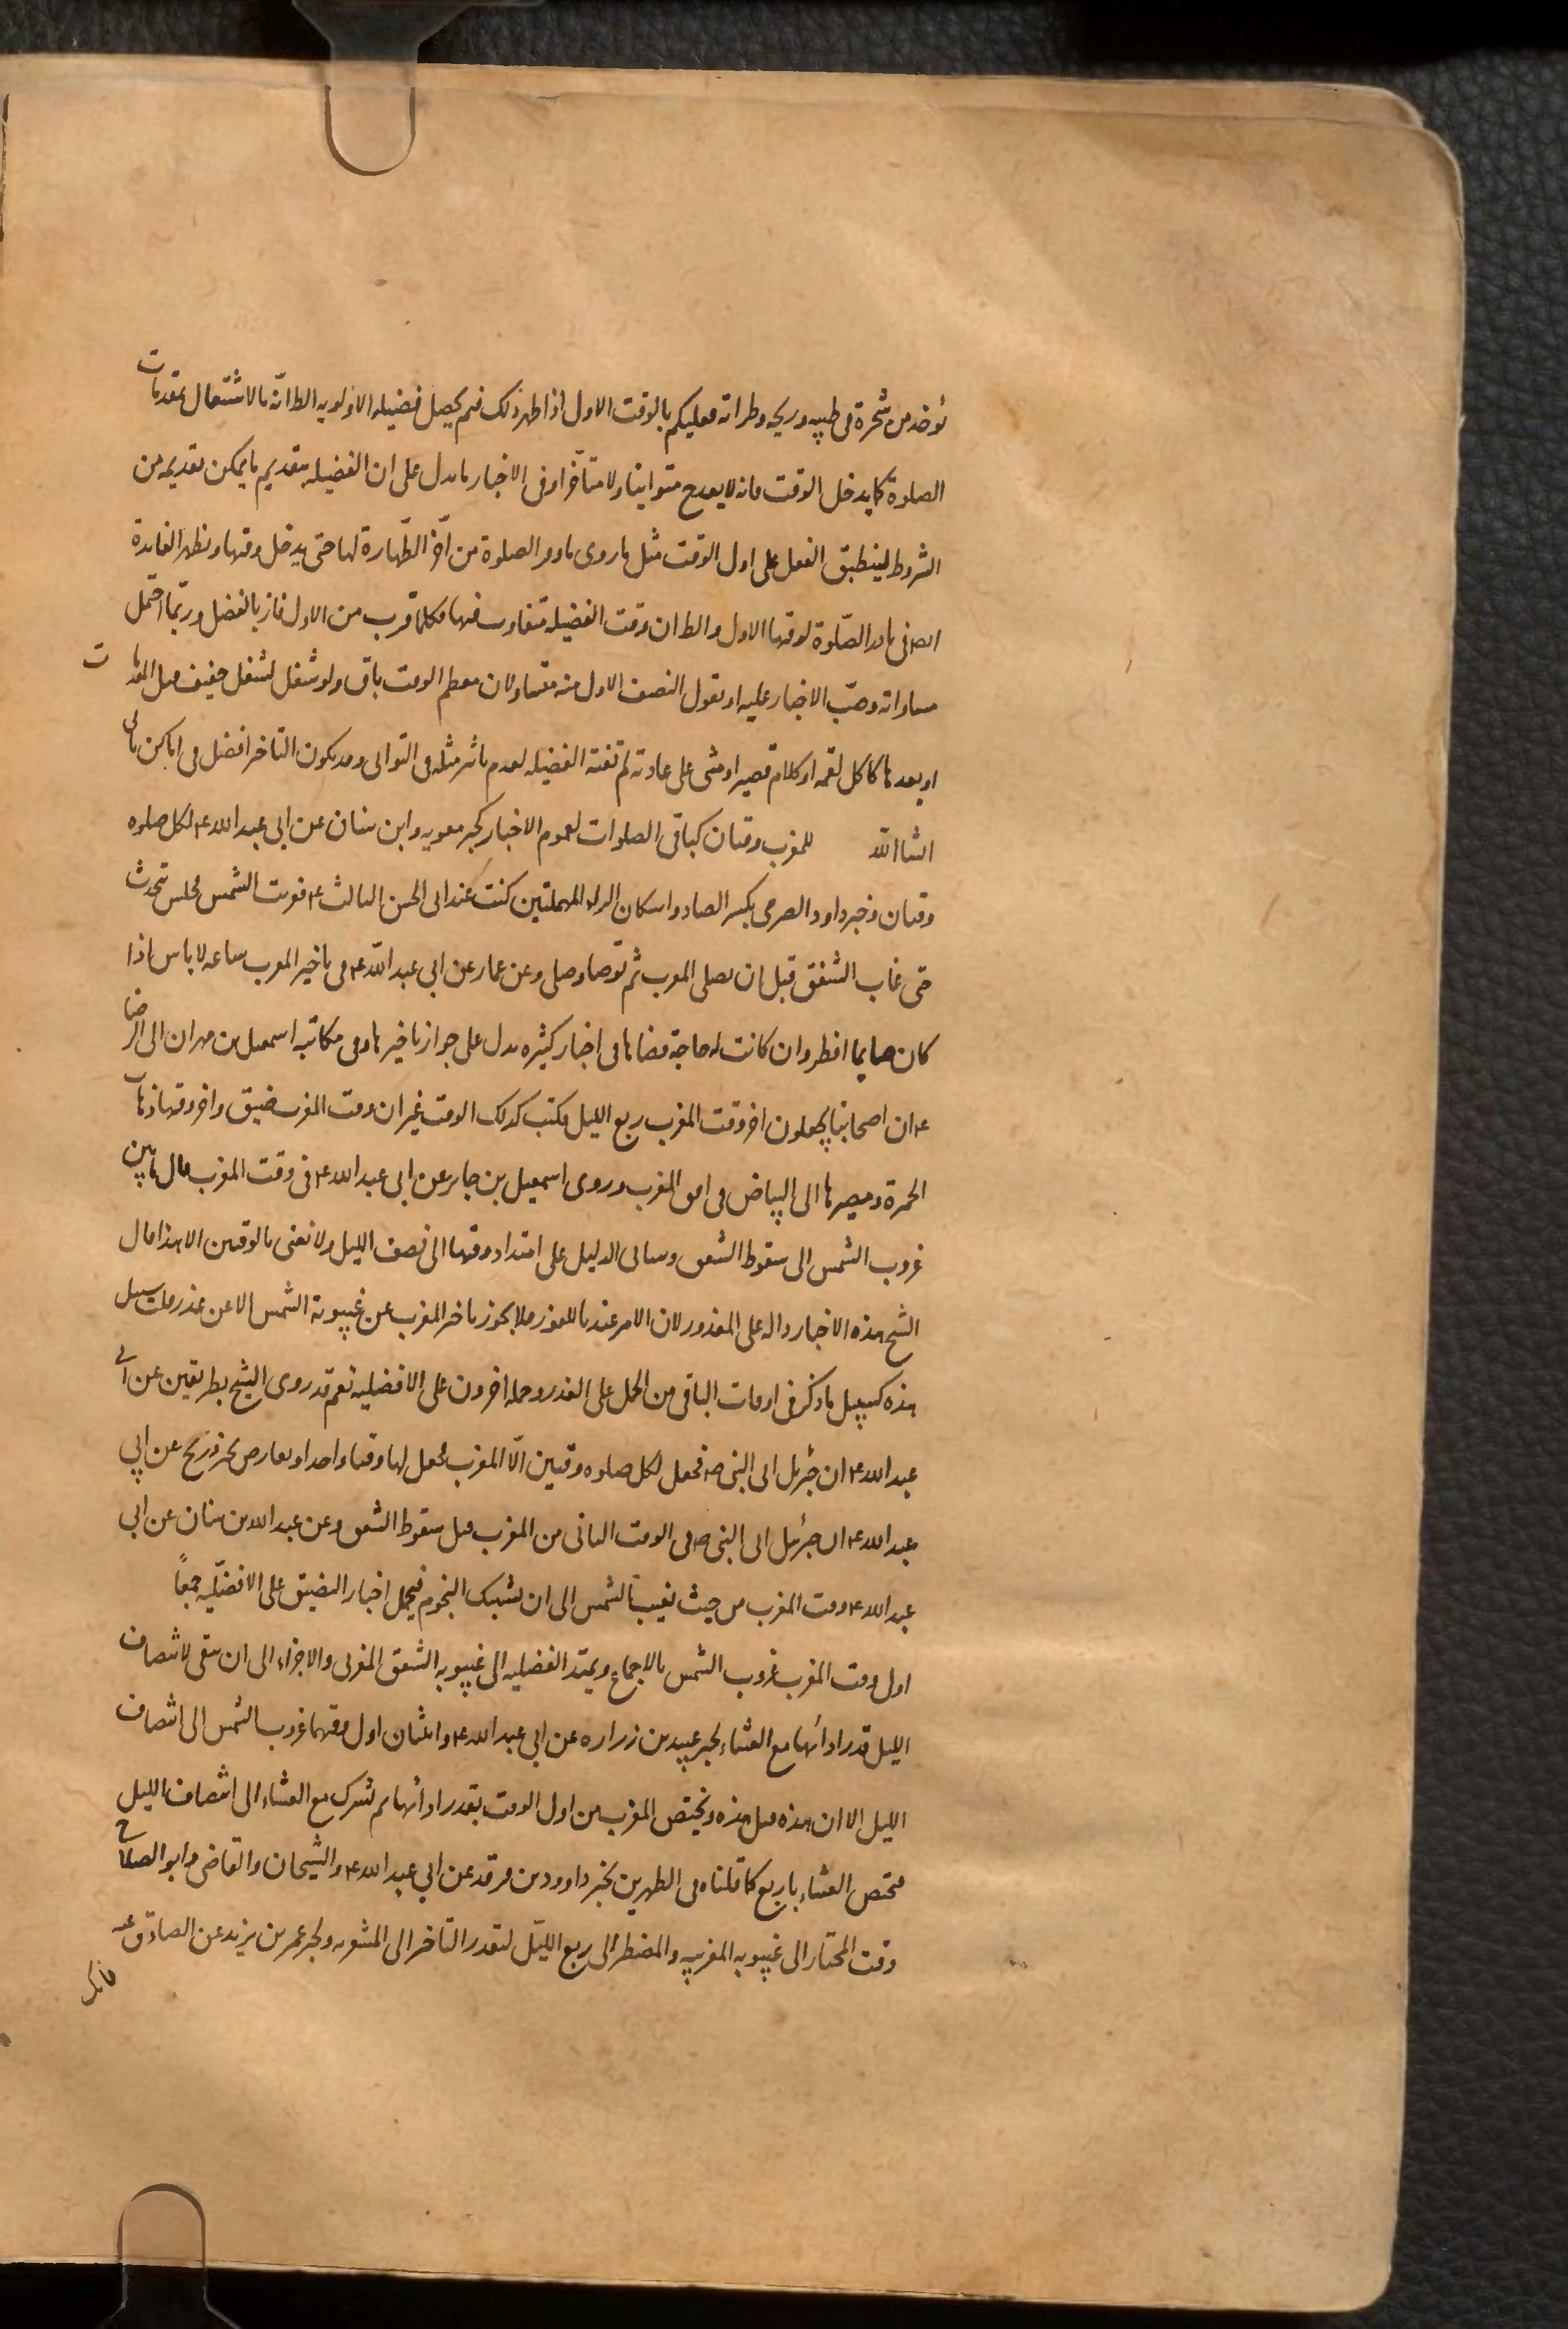 يؤخذ من شجرة في طيبه وريحه وطراته فعليكم بالوقت الاول اذا ظهر ذلك فبم يحصل فضيله الاولويه الظ انّه بالاشتغال بمقدمات
الصلوة كما يدخل الوقت فانه لا يعد ح متوانيا ولا متأخّرا وفى الاخبار ما يدل على ان الفضيله بتقديم ما يمكن تقديمه من
الشروط لينطبق الفعل على اول الوقت مثل ما روى ما وقر الصلوة من أخّر الطّهارة لها حتى يدخل وقتها وتظهر الفايدة
ايضا فى نادر الصّلوة لوقتها الاول والظ ان وقت الفضيله متفاوت فيها فكلما قرب من الاول فاز بالفضل وربّما احتمل
مساواته وحبّ الاخبار عليه او نقول النصف الاول منه متساو لان معظم الوقت باق ولو شغل لشغل خفيف قبل المقدمات
او بعدها كاكل لقمه او كلام قصير او مشى على عادته لم تفته الفضيله لعدم تاثير مثله فى التوانى وقد يكون التاخر افضل فى اماكن تاتى
انشا الله للمغرب وقتان كباقى الصلوات لعموم الاخبار كخبر معويه وابن سنان عن ابى عبد الله ع لكل صلوه
وقتان وخبر داود الصرمى بكسر الصاد واسكان الراء المهملتين كنت عند ابى الحسن الثالث ع فغربت الشمس فجلس يتحدث
حتى غاب الشفق قبل ان يصلى المغرب ثم توضا وصلى وعن عمار عن ابى عبد الله ع فى تاخير المغرب ساعه لا باس اذا
كان صايما افطر وان كانت له حاجة قضاها فى اخبار كثيره تدل على جواز تاخيرها وفى مكاتبه اسمعيل بن مهران الى الرضا
ع ان اصحابنا يجعلون اخر وقت المغرب ربع الليل فكتب كذلك الوقت غير ان وقت المغرب ضيق واخر وقتها ذهاب
الحمرة ومصيرها الى البياض فى افق المغرب وروى اسمعيل بن جابر عن ابى عبد الله ع فى وقت المغرب قال ما بين
غروب الشمس الى سقوط الشفق وسياتى الدليل على امتداد وقتها الى نصف الليل ولا نعنى بالوقتين الا هذا قال
الشيخ هذه الاخبار داله على المعذور لان الامر عندنا للفور فلا يجوز تاخر المغرب عن غيبوبة الشمس الا عن عذر قلت سبيل
هذه كسبيل ما ذكر فى اوقات الباقى من الحمل على العذر وحمله اخرون على الافضليه نعم قد روى الشيخ بطريقين عن ابى
عبد الله ع ان جبرئيل اتى النبى ص فجعل لكل صلوه وقتين الّا المغرب فجعل لها وقتا واحدا ويعارض بخبر ذريح عن ابي
عبد الله ع ان جبرئيل اتى النبى ص فى الوقت الثانى من المغرب قبل سقوط الشفق وعن عبد الله بن سنان عن ابى
عبد الله ع وقت المغرب من حيث تغيب الشمس الى ان تشتبك النجوم فيحمل اخبار التضيق على الافضليّه جمعاً
اول وقت المغرب غروب الشمس بالاجماع ويمتد الفضليه الى غيبوبه الشفق المغربى والاجزاء الى ان يبقى لانتصاف
الليل قدر ادائها مع العشاء لخبر عبيد بن زراره عن ابى عبد الله ع واثنتان اول وقتهما غروب الشمس الى انتصاف
الليل الا ان هذه قبل هذه ويختص المغرب من اول الوقت بقدر ادائها ثم تشترك مع العشاء الى انتصاف الليل
فتختص العشاء باربع كما قلناه فى الظهرين لخبر داوود بن فرقد عن ابي عبد الله ع والشيخان والقاضى وابو الصلاح
وقت المختار الى غيبوبه المغربيه والمضطر الى ربع الليل لتعذر التاخر الى المشهور ولخبر عمر بن يزيد عن الصادق ع